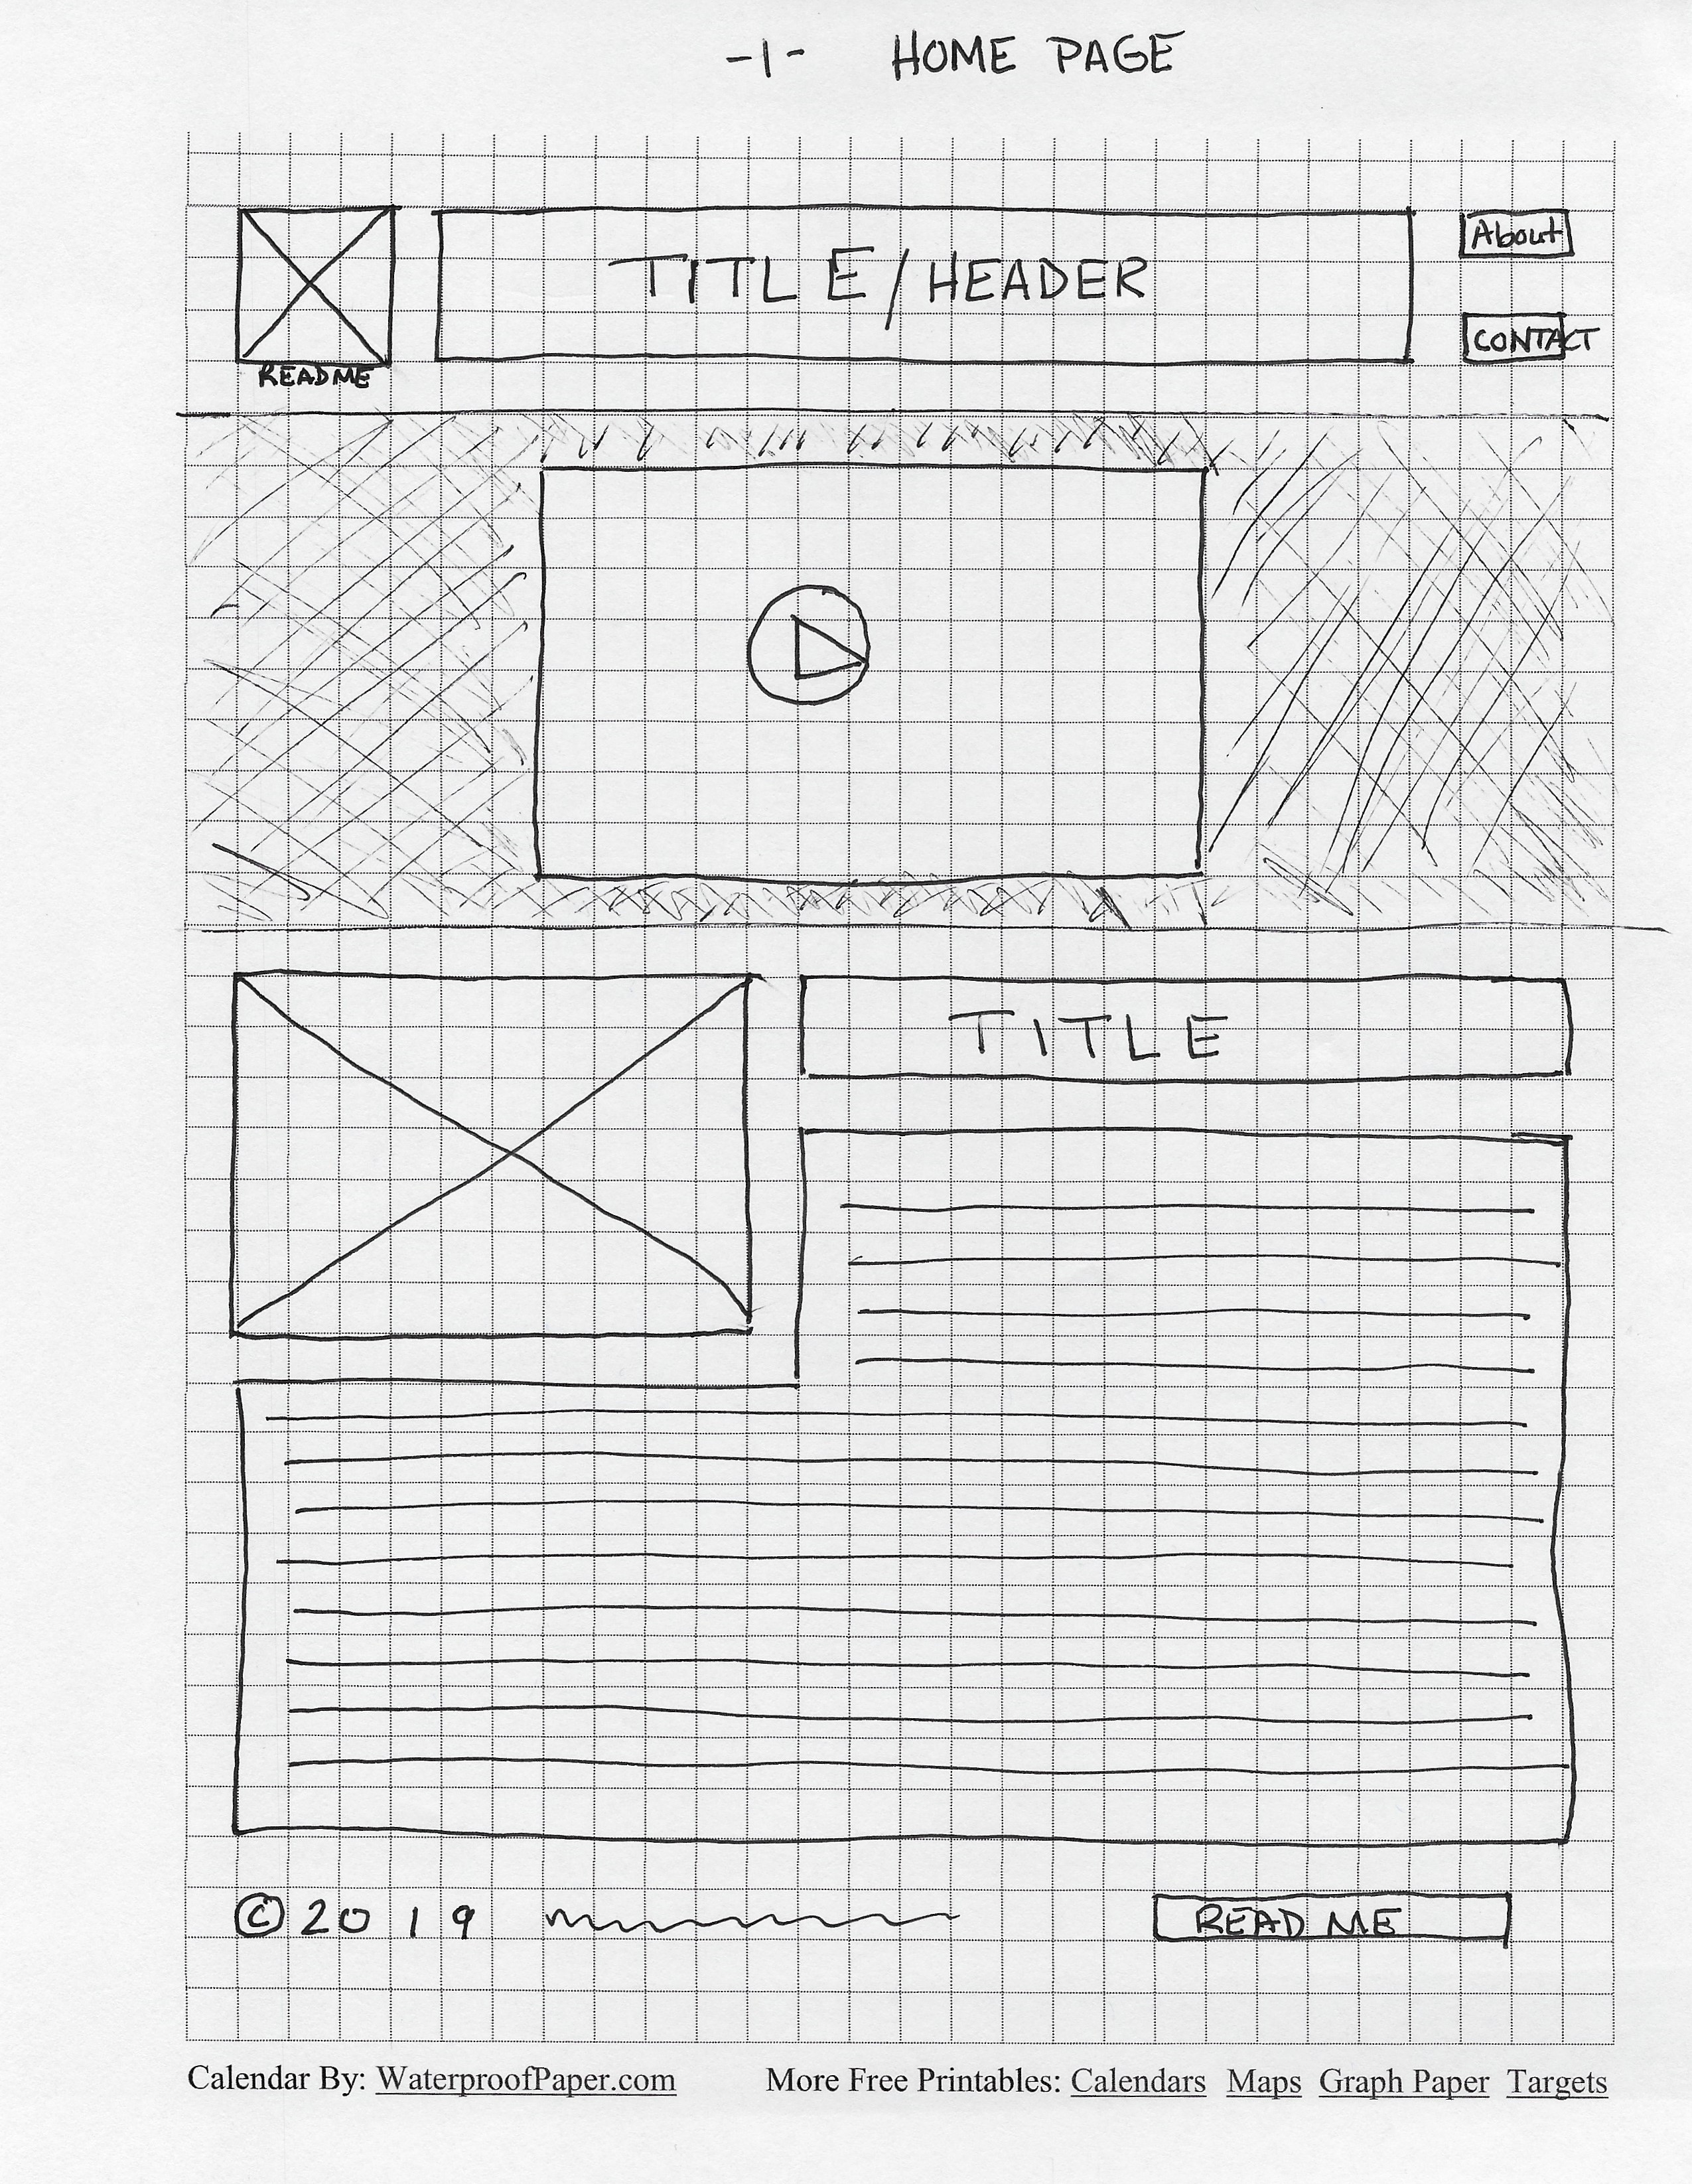 -1- HOME PAGE
TITLE/HEADER
About
CONTACT
README
TITLE
© 2019
READ ME
Calendar By: WaterproofPaper.com More Free Printables: Calendars Maps Graph Paper Targets